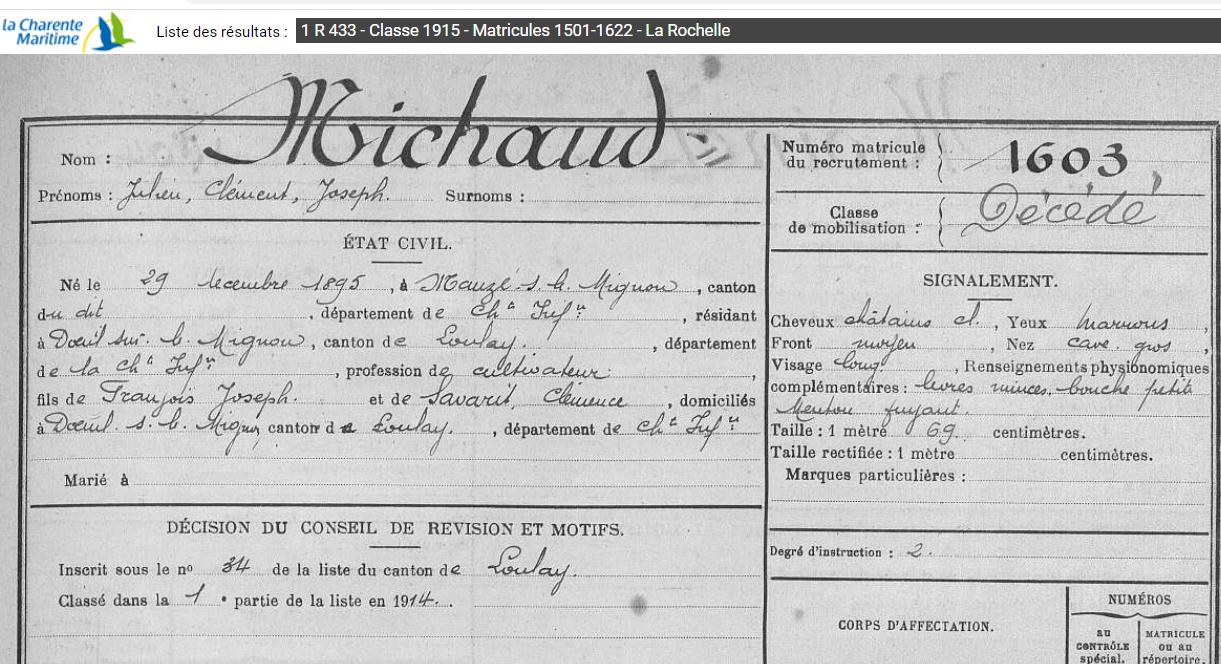 la Charente
Maritime
Liste des résultats : 1 R 433 - Classe 1915 - Matricules 1501-1622 - La Rochelle
Nom : Michaud
Prénoms : Julien, Clément, Joseph. Surnoms :
Numéro matricule
du recrutement : 1603
Classe
de mobilisation : Décédé
ÉTAT CIVIL.
Né le 29 decembre 1895, à Mauzé s. le Mignon, canton
du dit, département de Chte Infre, résidant
à Doeuil sur le Mignon, canton de Loulay., département
de la Chte Infre, profession de cultivateur,
fils de François Joseph. et de Savarit, Clémence, domiciliés
à Doeuil s. le Mignon canton de Loulay., département de Chte Infre
Marié à
SIGNALEMENT.
Cheveux châtains cl., Yeux marrons,
Front moyen, Nez cave. gros,
Visage long, Renseignements physionomiques
complémentaires : levres minces, bouche petite
Menton fuyant.
Taille : 1 mètre 69 centimètres.
Taille rectifiée : 1 mètre centimètres.
Marques particulières :
DÉCISION DU CONSEIL DE REVISION ET MOTIFS.
Inscrit sous le no 34 de la liste du canton de Loulay.
Classé dans la 1 e partie de la liste en 1914.
Degré d'instruction : 2.
CORPS D'AFFECTATION.
NUMÉROS
au
CONTRÔLE
spécial.
MATRICULE
ou au
répertoire.